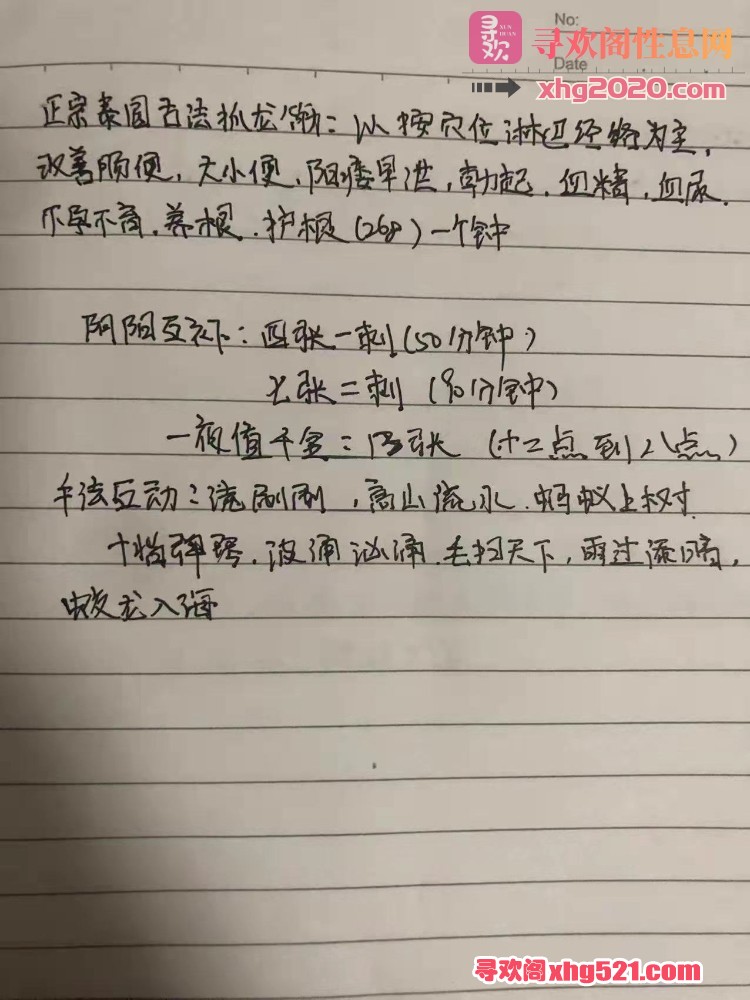 寻欢 XUN HUAN 寻欢阁性息网
No:
Date
xhg2020.com
正宗泰国古法抓龙筋：以按穴位淋巴经络为主，
改善肠便，大小便，阳痿早泄，勃起，血精，血尿，
不孕不育，养根，护根（268）一个钟
阴阳互补：四张一刺（50分钟）
七张二刺（90分钟）
一夜值千金：13张（十二点到八点）
手法互动：洗刷刷，高山流水，蚂蚁上树
十指弹琴，波涌汹涌，毛扫天下，雨过添晴，
蛟龙入海
寻欢阁xhg521.com